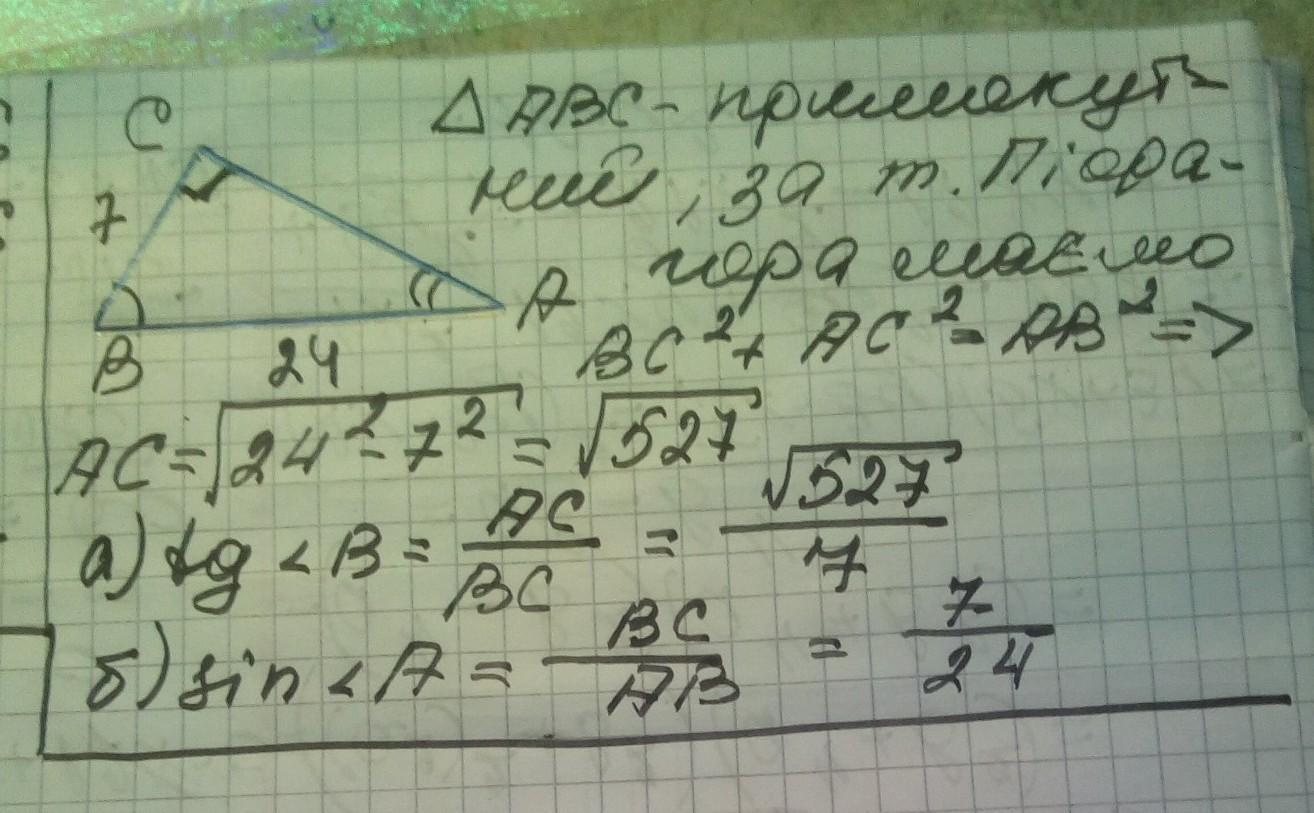 C
△ABC - прямокут-
ний, за т. Піфа-
7
гора маємо
A
B
24
BC² + AC² = AB² =>
AC = √24² - 7² = √527
а) tg < B = AC/BC = √527/7
б) sin < A = BC/AB = 7/24